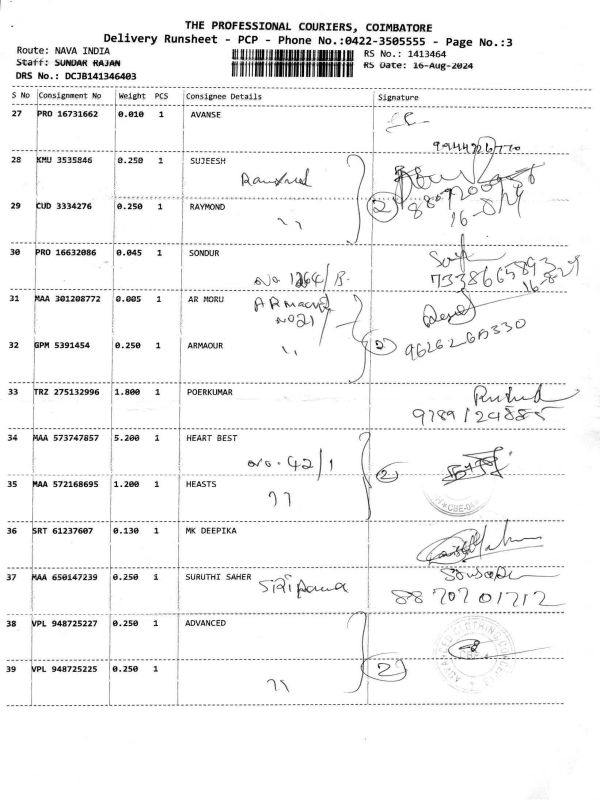 THE PROFESSIONAL COURIERS, COIMBATORE
Delivery Runsheet - PCP - Phone No.:0422-3505555 - Page No.:3
Route: NAVA INDIA
RS No.: 1413464
Staff: SUNDAR RAJAN
RS Date: 16-Aug-2024
DRS No.: DCJB141346403
S No Consignment No Weight PCS Consignee Details Signature
27 PRO 16731662 0.010 1 AVANSE
28 KMU 3535846 0.250 1 SUJEESH
29 CUD 3334276 0.250 1 RAYMOND
2
,,
30 PRO 16632086 0.045 1 SONDUR
No 1264/B.
7338665893
31 MAA 301208772 0.005 1 AR MORU
No 21
32 GPM 5391454 0.250 1 ARMAOUR
,,
2
33 TRZ 275132996 1.800 1 POERKUMAR
9789124885
34 MAA 573747857 5.200 1 HEART BEST
No. 42/1
2
35 MAA 572168695 1.200 1 HEASTS
,,
36 SRT 61237607 0.130 1 MK DEEPIKA
37 MAA 650147239 0.250 1 SURUTHI SAHER
8870701712
38 VPL 948725227 0.250 1 ADVANCED
39 VPL 948725225 0.250 1
,,
2